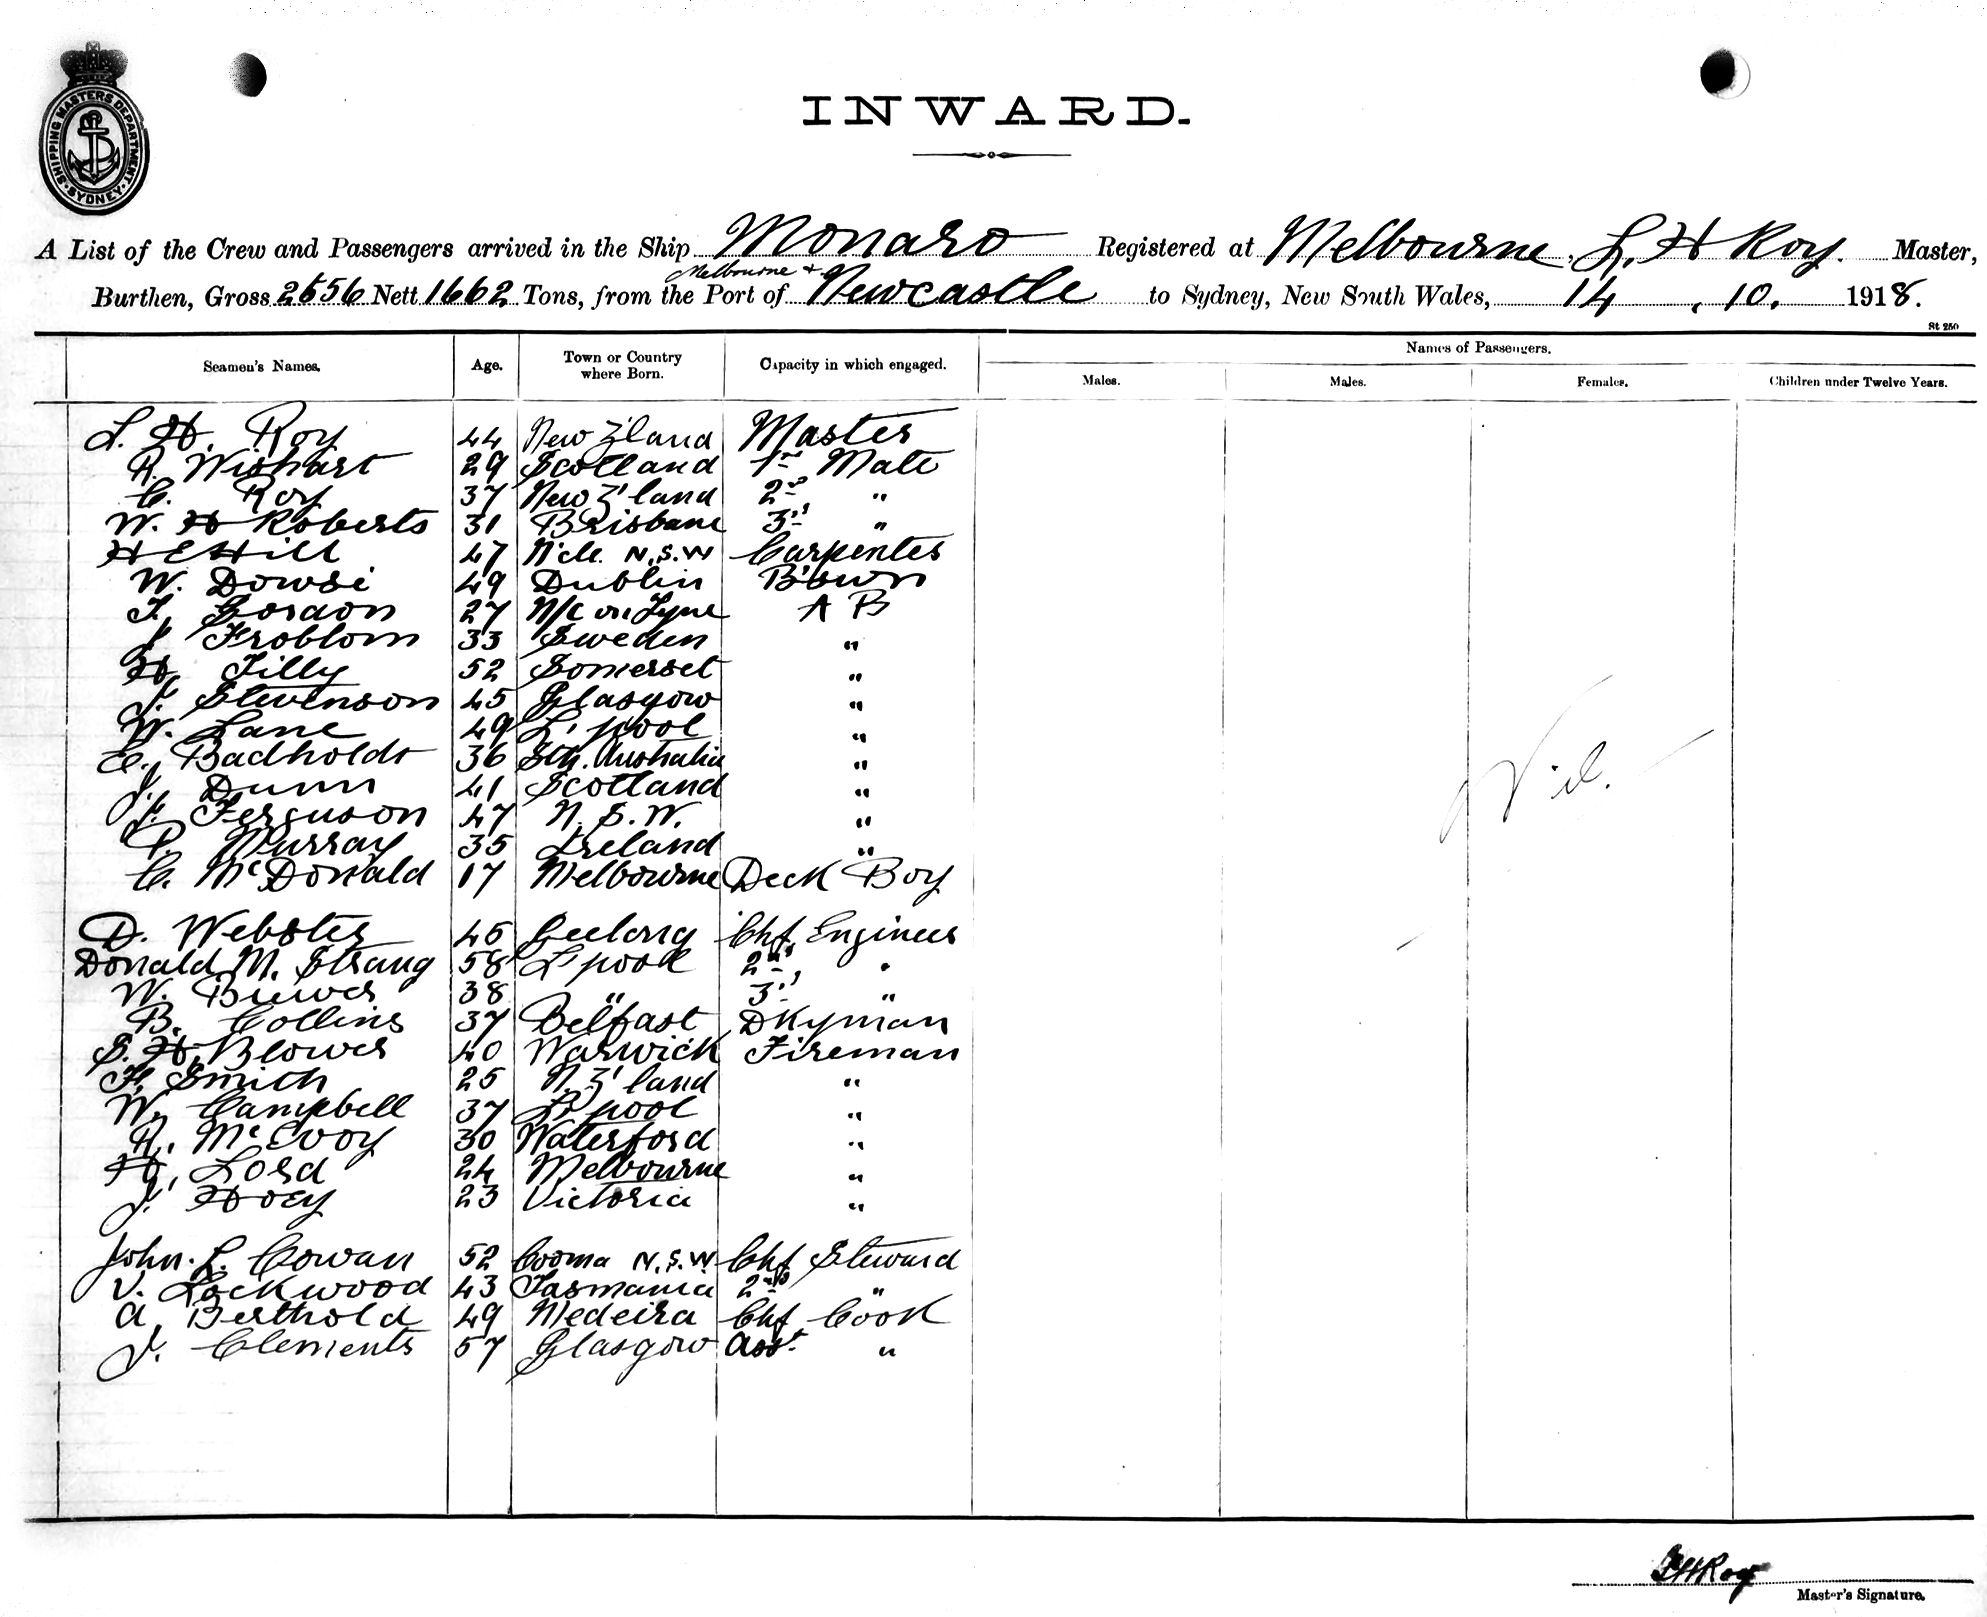 SHIPPING MASTERS DEPARTMENT. SYDNEY
INWARD.
A List of the Crew and Passengers arrived in the Ship Monaro Registered at Melbourne, L. H Roy. Master,
Melbourne +
Burthen, Gross 2556 Nett 1662 Tons, from the Port of Newcastle to Sydney, New South Wales, 14 . 10. 1918.
St 250
Seamen's Names. Age. Town or Country where Born. Capacity in which engaged. Names of Passengers.
Males. Males. Females. Children under Twelve Years.
L. H. Roy 44 New Z'land Master
R. Wishart 29 Scotland 1st Mate
C. Roy 37 New Z'land 2nd "
W. H Roberts 31 Brisbane 3rd "
H E Hill 47 N'cle N.S.W Carpenter
W. Dowsi 49 Dublin B'swn
J. Gordon 27 N/c on Tyne A B
J. Froblom 33 Sweden "
H. Tilly 52 Somerset "
J. Stevenson 45 Glasgow "
W. Lane 49 L'pool "
C. Badholdt 36 Sth. Australia "
J. Dunn 41 Scotland "
J. Ferguson 47 N. S. W. "
P. Murray 35 Ireland "
C. McDonald 17 Melbourne Deck Boy
Nil.
D. Webster 45 Geelong Chf Engineer
Donald M. Strang 58 L'pool 2nd "
W. 38 " 3rd "
B. Collins 37 Belfast Dkyman
S. H. Blower 40 Warwick Fireman
F. Smith 25 N. Z'land "
W. Campbell 37 L'pool "
R. McEvoy 30 Waterford "
H. Lord 24 Melbourne "
J. Hoey 23 Victoria "
John. L. Cowan 52 Cooma N.S.W. Chf Steward
V. Lockwood 43 Tasmania 2nd "
A. Berthold 49 Medeira Chf Cook
J. Clements 57 Glasgow Asst. "
L H Roy
Master's Signature.